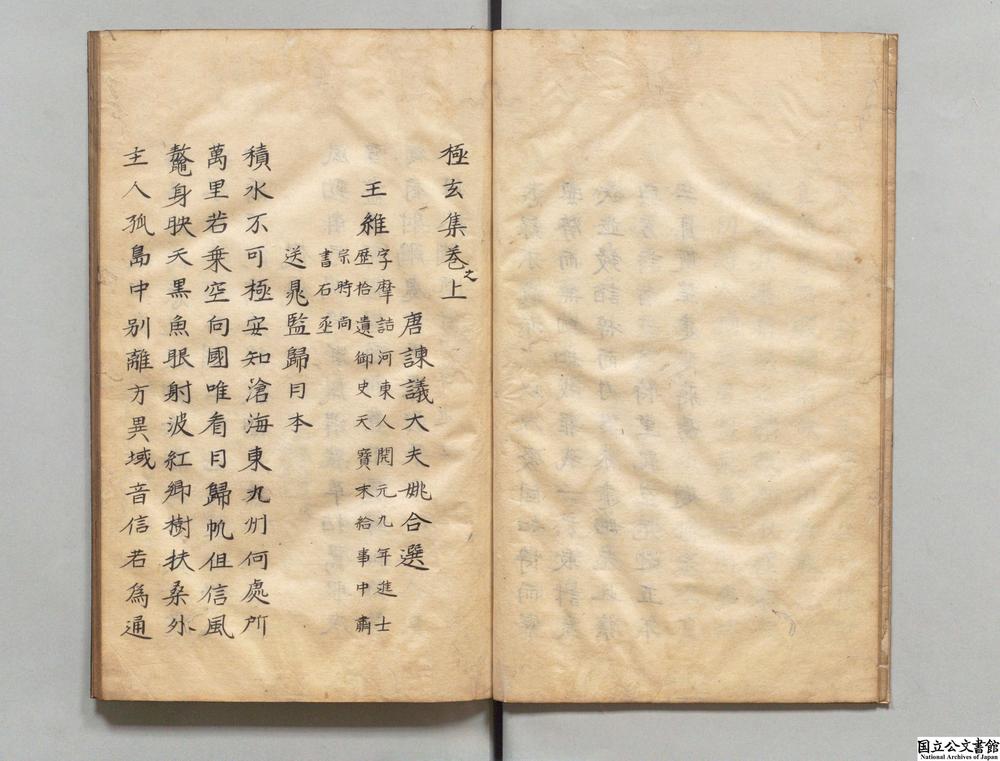 極玄集卷之上
唐諫議大夫姚合選
王維
字摩詰河東人開元九年進士
歷拾遺御史天寶末給事中肅
宗時尚
書右丞
送晁監歸日本
積水不可極安知滄海東九州何處所
萬里若乗空向國唯看日歸帆但信風
鼇身映天黒魚眼射波紅鄉樹扶桑外
主人孤島中别離方異域音信若爲通
国立公文書館
National Archives of Japan